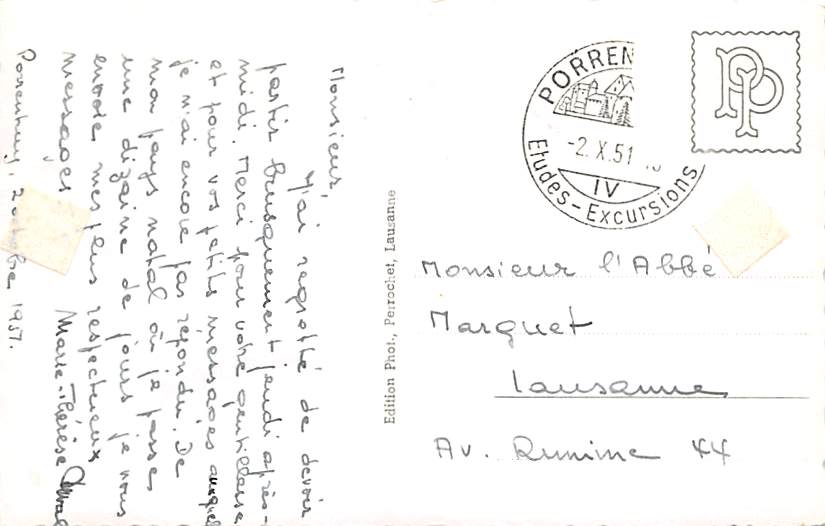 Monsieur,
J'ai regretté de devoir
partir brusquement jeudi après-
midi. Merci pour votre gentillesse
et pour vos petits messages auxquels
je n'ai encore pas répondu. De
mon pays natal où je passe
une dizaine de jours je vous
envoie mes plus respectueux
messages
Marie-Thérèse
Porrentruy, 2 octobre 1951.
Edition Phot., Perrochet, Lausanne
PORREN
-2.X.51
IV
Etudes-Excursions
PP
Monsieur l'Abbé
Marquet
Lausanne
Av. Rumine 44